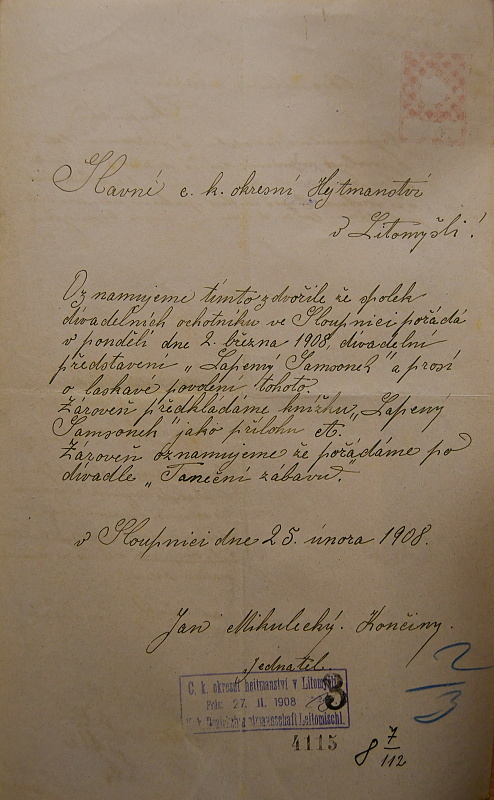 Slavné c. k. okresní Hejtmanství
v Litomyšli!
Oznamujeme tímto zdvořile že spolek
divadelních ochotníku ve Sloupnici pořádá
v pondělí dne 2. března 1908, divadelní
představení „Lapený Samsonek" a prosí
o laskave povolení tohoto.
Zároveň předkládáme knížku „Lapený
Samsonek" jako přílohu
Zároveň oznamujeme že pořádáme po
divadle „Taneční zábavu".
v Sloupnici dne 25. února 1908.
Jan Mikulecký. Končiny.
Jednatel.
C. k. okresní hejtmanství v Litomyšli
27. II. 1908
3
4115
2/3
8 7/112